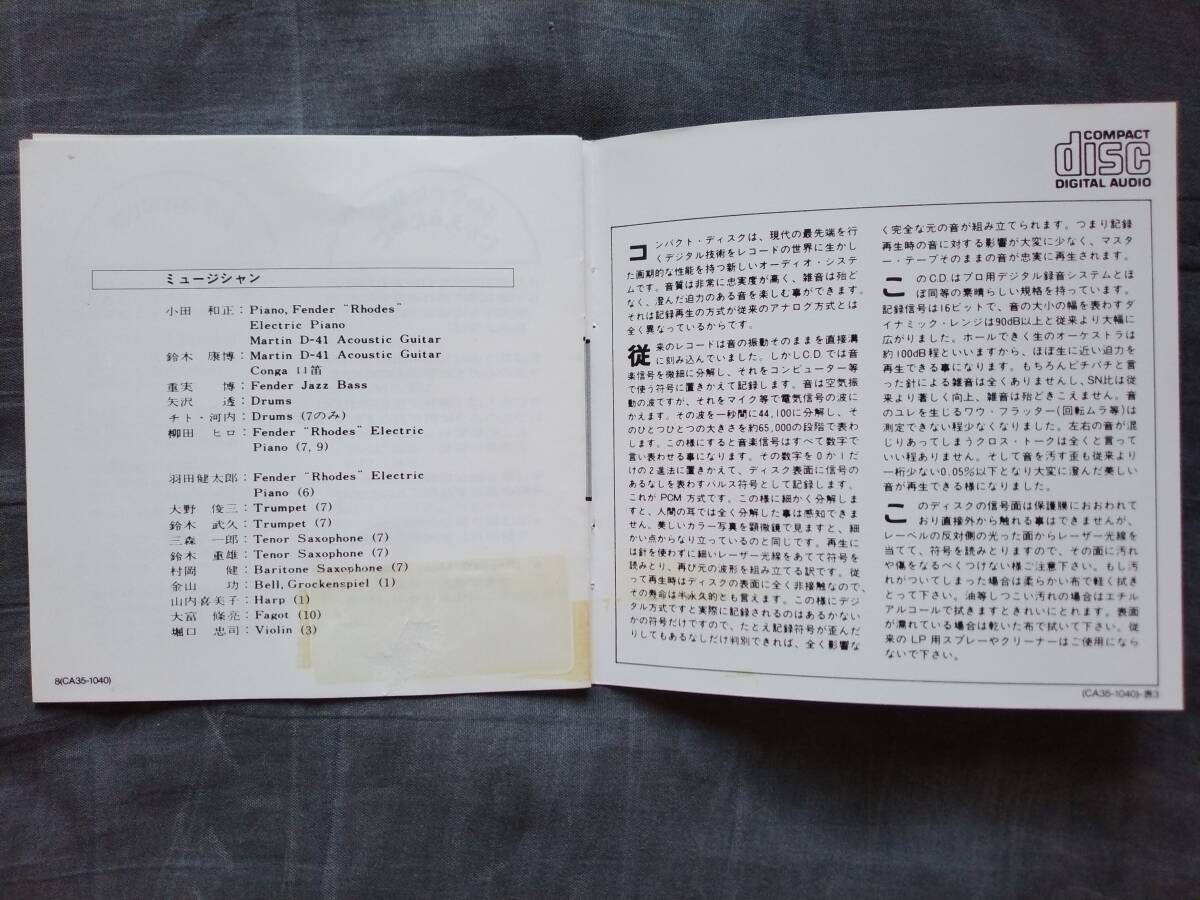 ミュージシャン
小田 和正：Piano, Fender "Rhodes"
Electric Piano
Martin D-41 Acoustic Guitar
鈴木 康博：Martin D-41 Acoustic Guitar
Conga 口笛
重実 博：Fender Jazz Bass
矢沢 透：Drums
チト・河内：Drums (7のみ)
柳田 ヒロ：Fender "Rhodes" Electric
Piano (7, 9)
羽田健太郎：Fender "Rhodes" Electric
Piano (6)
大野 俊三：Trumpet (7)
鈴木 武久：Trumpet (7)
三森 一郎：Tenor Saxophone (7)
鈴木 重雄：Tenor Saxophone (7)
村岡 健：Baritone Saxophone (7)
金山 功：Bell, Grockenspiel (1)
山内喜美子：Harp (1)
大富 條亮：Fagot (10)
堀口 忠司：Violin (3)
8(CA35-1040)
COMPACT
disc
DIGITAL AUDIO
コンパクト・ディスクは、現代の最先端を行
くデジタル技術をレコードの世界に生かし
た画期的な性能を持つ新しいオーディオ・システ
ムです。音質は非常に忠実度が高く、雑音は殆ど
なく、澄んだ迫力のある音を楽しむ事ができます。
それは記録再生の方式が従来のアナログ方式とは
全く異なっているからです。
従来のレコードは音の振動そのままを直接溝
に刻み込んでいました。しかしC.D.では音
楽信号を微細に分解し、それをコンピューター等
で使う符号に置きかえて記録します。音は空気振
動の波ですが、それをマイク等で電気信号の波に
かえます。その波を一秒間に44,100に分解し、そ
のひとつひとつの大きさを約65,000の段階で表わ
します。この様にすると音楽信号はすべて数字で
言い表わせる事になります。その数字を0か1だ
けの2進法に置きかえて、ディスク表面に信号の
あるなしを表わすパルス符号として記録します。
これが PCM 方式です。この様に細かく分解しま
すと、人間の耳では全く分解した事は感知できま
せん。美しいカラー写真を顕微鏡で見ますと、細
かい点からなり立っているのと同じです。再生に
は針を使わずに細いレーザー光線をあてて符号を
読みとり、再び元の波形を組み立てる訳です。従
って再生時はディスクの表面に全く非接触なので、
その寿命は半永久的とも言えます。この様にデジ
タル方式ですと実際に記録されるのはあるかない
かの符号だけですので、たとえ記録符号が歪んだ
りしてもあるなしだけ判別できれば、全く影響な
く完全な元の音が組み立てられます。つまり記録
再生時の音に対する影響が大変に少なく、マスタ
ー・テープそのままの音が忠実に再生されます。
このC.D.はプロ用デジタル録音システムとほ
ぼ同等の素晴らしい規格を持っています。
記録信号は16ビットで、音の大小の幅を表わすダ
イナミック・レンジは90dB以上と従来より大幅に
広がりました。ホールできく生のオーケストラは
約100dB程といいますから、ほぼ生に近い迫力を
再生できる事になります。もちろんピチパチと言
った針による雑音は全くありませんし、SN比は従
来より著しく向上、雑音は殆どきこえません。音
のユレを生じるワウ・フラッター(回転ムラ等)は
測定できない程少なくなりました。左右の音が混
じりあってしまうクロス・トークは全くと言って
いい程ありません。そして音を汚す歪も従来より
一桁少ない0.05%以下となり大変に澄んだ美しい
音が再生できる様になりました。
このディスクの信号面は保護膜におおわれて
おり直接外から触れる事はできませんが、
レーベルの反対側の光った面からレーザー光線を
当てて、符号を読みとりますので、その面に汚れ
や傷をなるべくつけない様ご注意下さい。もし汚
れがついてしまった場合は柔らかい布で軽く拭き
とって下さい。油等しつこい汚れの場合はエチル
アルコールで拭きますときれいにとれます。表面
が濡れている場合は乾いた布で拭いて下さい。従
来の LP 用スプレーやクリーナーはご使用になら
ないで下さい。
(CA35-1040)-表3